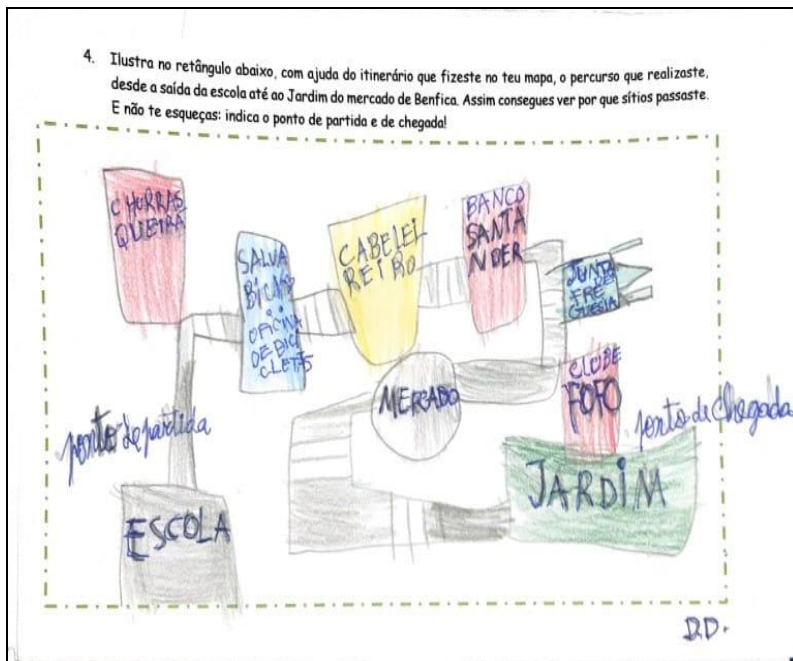 4. Ilustra no retângulo abaixo, com ajuda do itinerário que fizeste no teu mapa, o percurso que realizaste,
desde a saída da escola até ao Jardim do mercado de Benfica. Assim consegues ver por que sítios passaste.
E não te esqueças: indica o ponto de partida e de chegada!
CHURRAS
QUEIRA
SALVA
BICAS
OFICINA
DE BICI
CLETAS
CABELEI
REIRO
BANCO
SANTA
NDER
JUNTA
DE
FRE
GUESIA
MERCADO
CLUBE
FOFO
ponto de partida
ponto de chegada
ESCOLA
JARDIM
D.D.